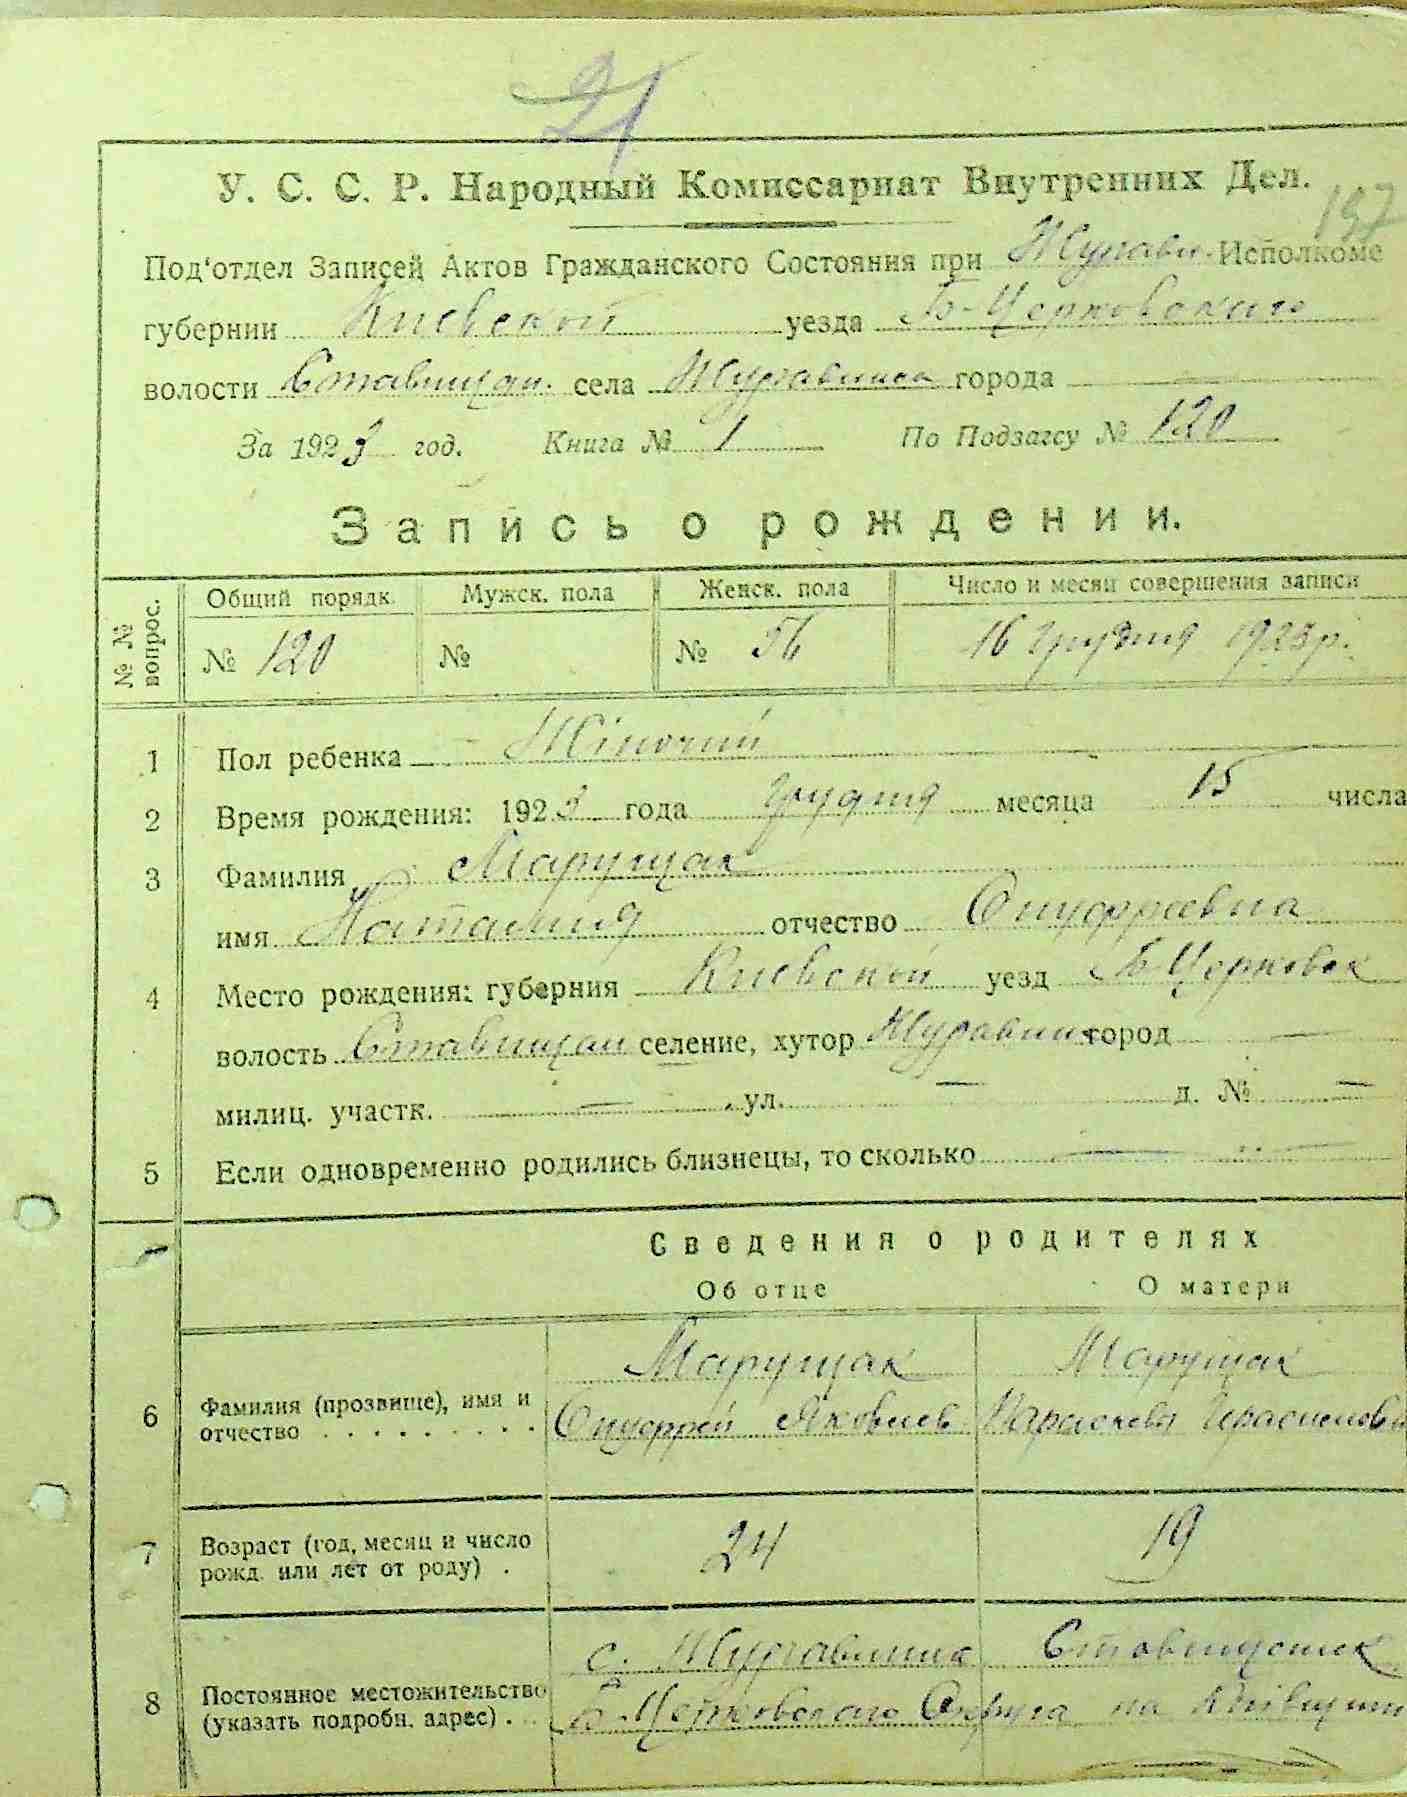 21
У. С. С. Р. Народный Комиссариат Внутренних Дел.
197
Под‘отдел Записей Актов Гражданского Состояния при Журавл. Исполкоме
губернии Киевской уезда Б-Церковского
волости Ставищан. села Журавлиха города —
За 1923 год. Книга № 1 По Подзагсу № 120
Запись о рождении.
№ № вопрос. Общий порядк. Мужск. пола Женск. пола Число и месяц совершения записи
№ 120 № № 56 16 грудня 1923 р.
1 Пол ребенка Жіночий
2 Время рождения: 1923 года грудня месяца 15 числа
3 Фамилия Марущак
имя Наталия отчество Онуфреевна
4 Место рождения: губерния Киевской уезд Б-Церковск
волость Ставищан селение, хутор Журавлиха город —
милиц. участк. — ул. — д. № —
5 Если одновременно родились близнецы, то сколько —
Сведения о родителях
Об отце О матери
Марущак Марущак
6 Фамилия (прозвище), имя и
отчество . . . . . . . . . Онуфрей Яковлев Параскева Герасимовн
7 Возраст (год, месяц и число
рожд. или лет от роду) . 24 19
с. Журавлиха Ставищанск
8 Постоянное местожительство
(указать подробн. адрес) . Б-Церковского Округа на Київщині